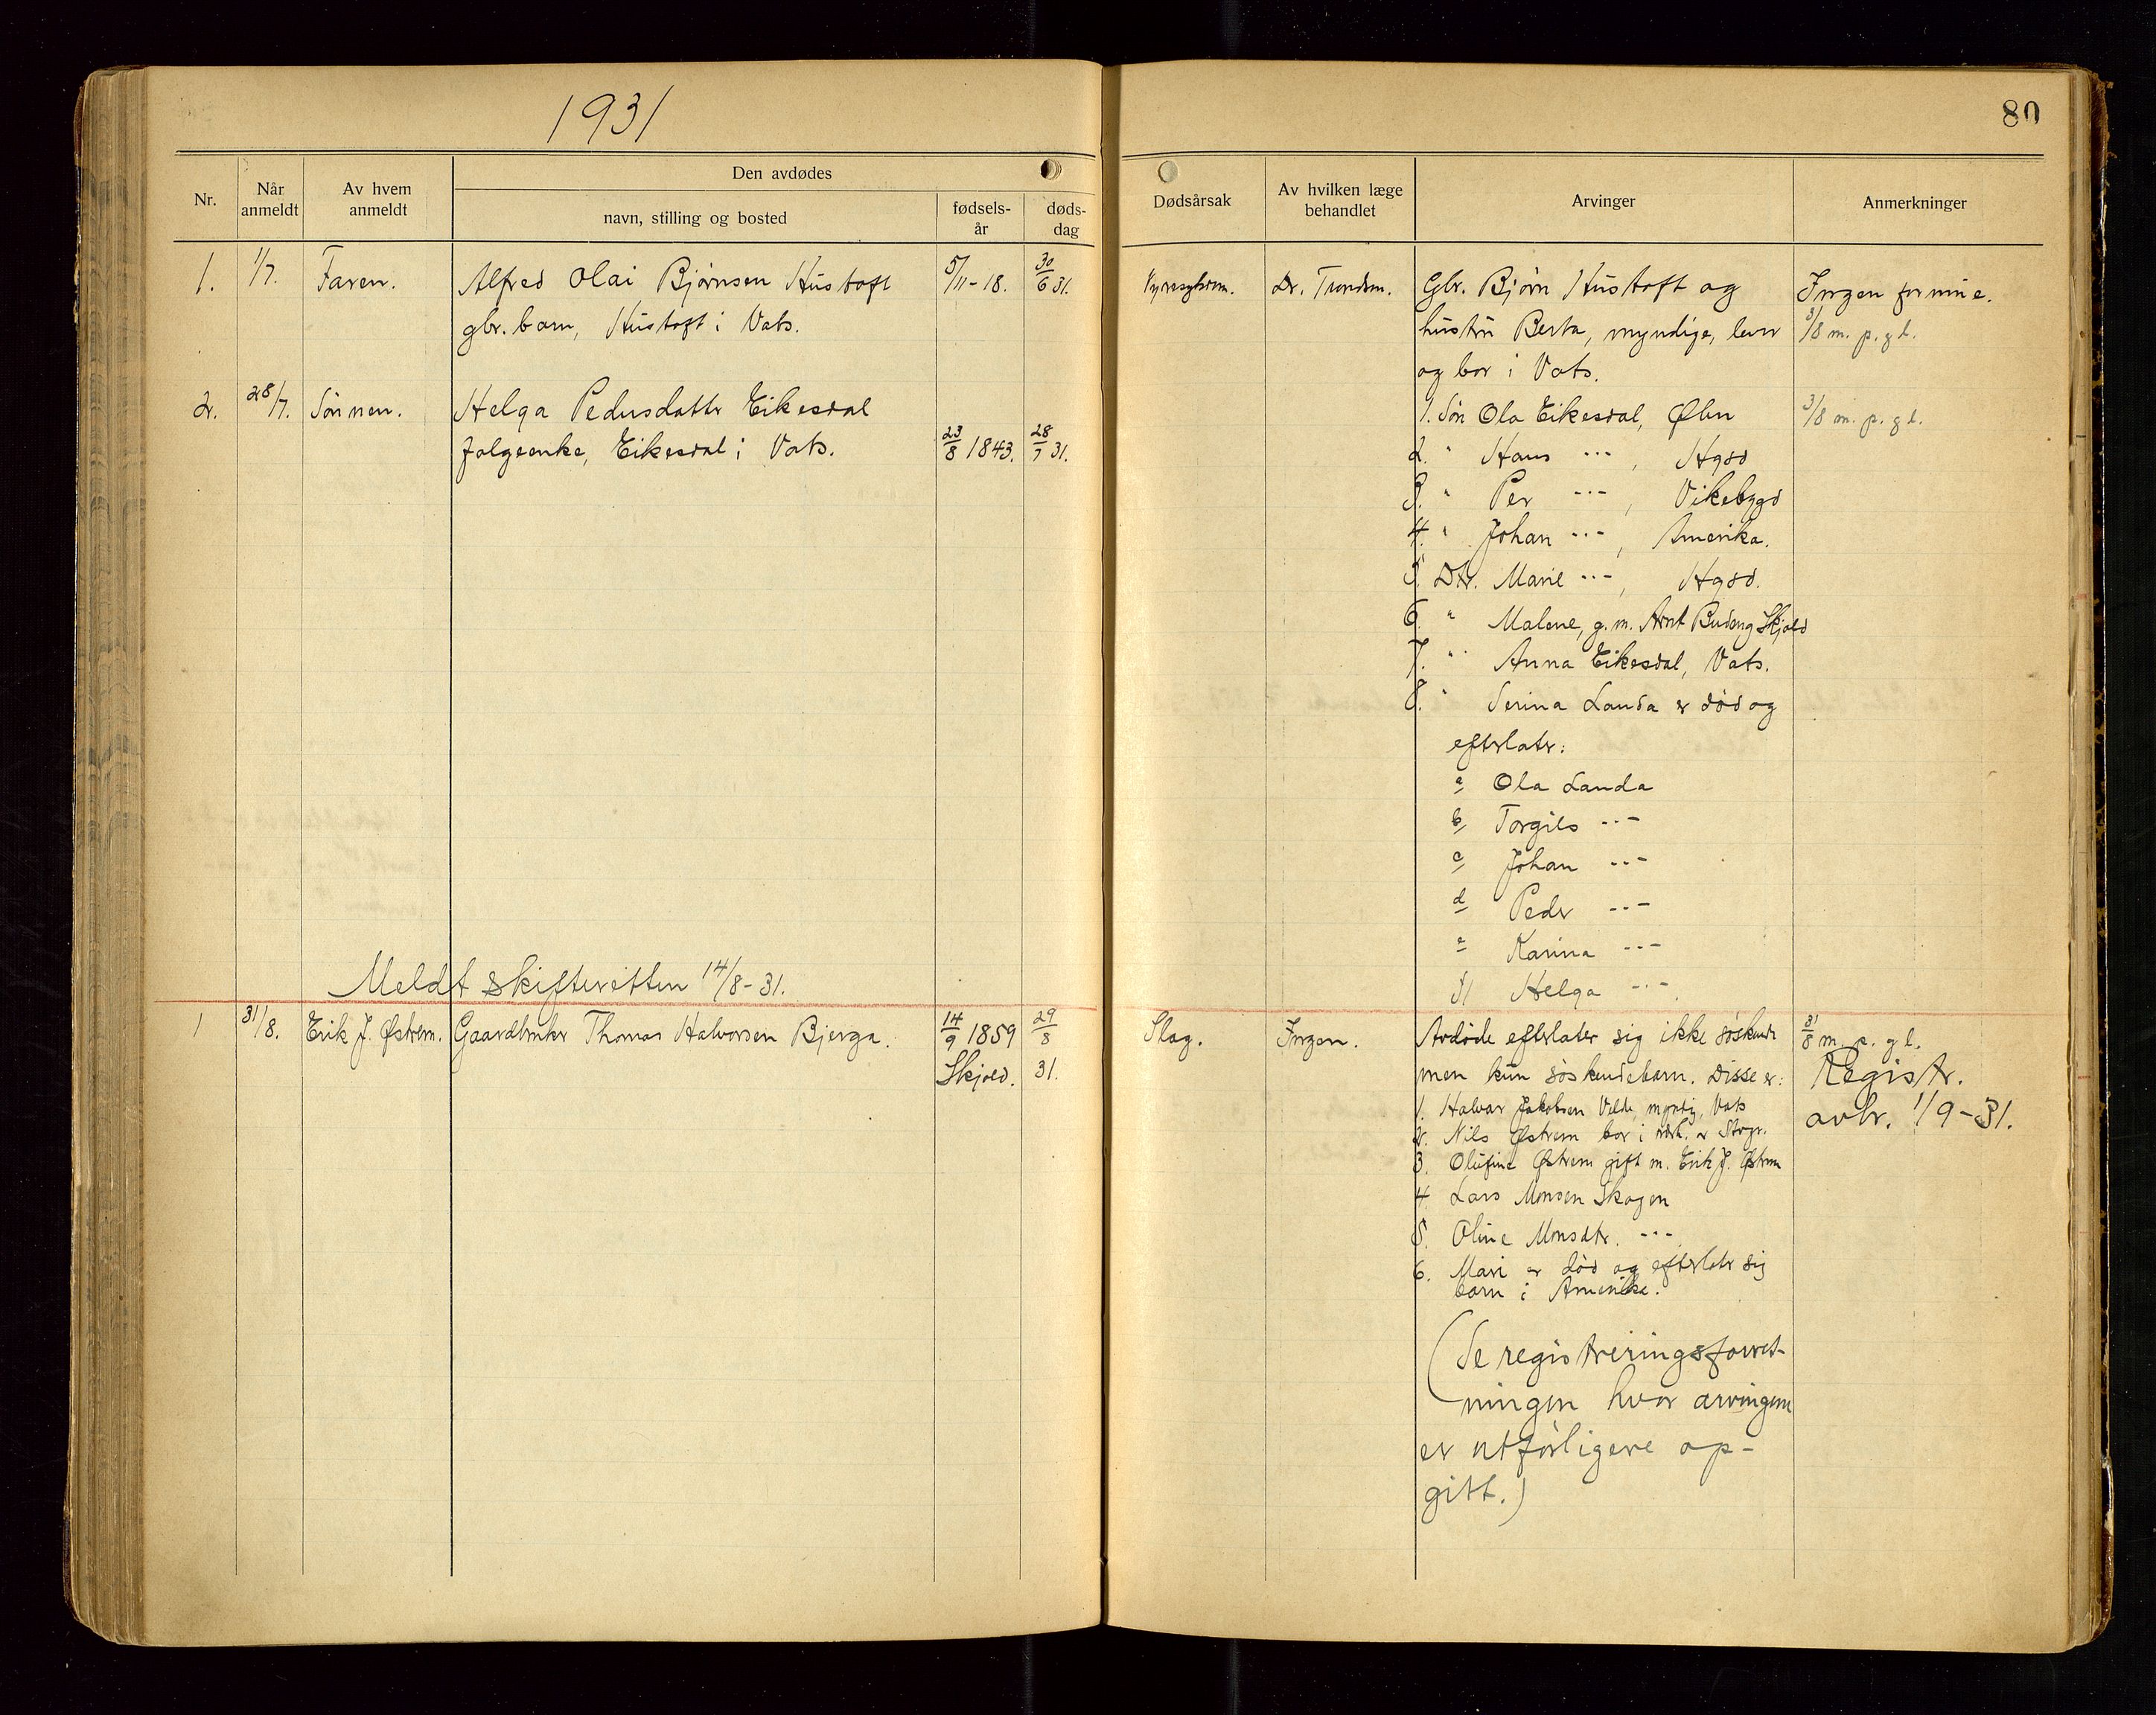 1931
80
Nr.
Når anmeldt
Av hvem anmeldt
Den avdødes
navn, stilling og bosted
fødsels-
år
døds-
dag
Dødsårsak
Av hvilken læge
behandlet
Arvinger
Anmerkninger
1. 1/7. Faren. Alfred Olai Bjørnsen Hustoft 5/11-18. 30/6 31.
gbr. barn, Hustoft i Vats.
Nyresykdom. Dr. Trondsen. Gbr. Bjørn Hustoft og Ingen formue.
hustru Berta, myndige, lever 3/8 m. p. g l.
og bor i Vats.
2. 28/7. Sønnen. Helga Pedersdatter Eikesdal
Folgeenke, Eikesdal i Vats. 23/8 1843. 28/7 31.
1. Søn Ola Eikesdal, Ølen 3/8 m. p. g l.
2. " Hans -"-, Hgsd
3. " Per -"-, Vikebygd
4. " Johan -"-, Amerika.
5. Dtr. Marie -"-, Hgsd.
6. " Malene, g. m. Arnt Skjold
7. " Anna Eikesdal, Vats.
8. " Serina Landa er död og
efterlater:
a Ola Landa
b Torgils -"-
c Johan -"-
d Peder -"-
e Karina -"-
f Helga -"-
Meldt skifteretten 14/8-31.
1 31/8. Erik J. Østrem. Gaardbruker Thomas Halvorsen Bjerga. 14/9 1859 29/8
Skjold. 31.
Slag. Ingen. Avdøde efterlater sig ikke søskende 31/8 m. p. g l.
men kun søskendebarn. Disse er: Registr.
1. Halvor Jakobsen myndig, Vats avbr. 1/9-31.
2. Nils Østrem bor i
3. Olufine Østrem gift m. Erik J. Østrem
4 Lars Monsen Skogen
5. Oline Monsdtr. -"-
6. Mari er död og efterlater sig
barn i Amerika.
(Se registreringsforret-
ningen hvor arvingene
er utførligere op-
gitt.)